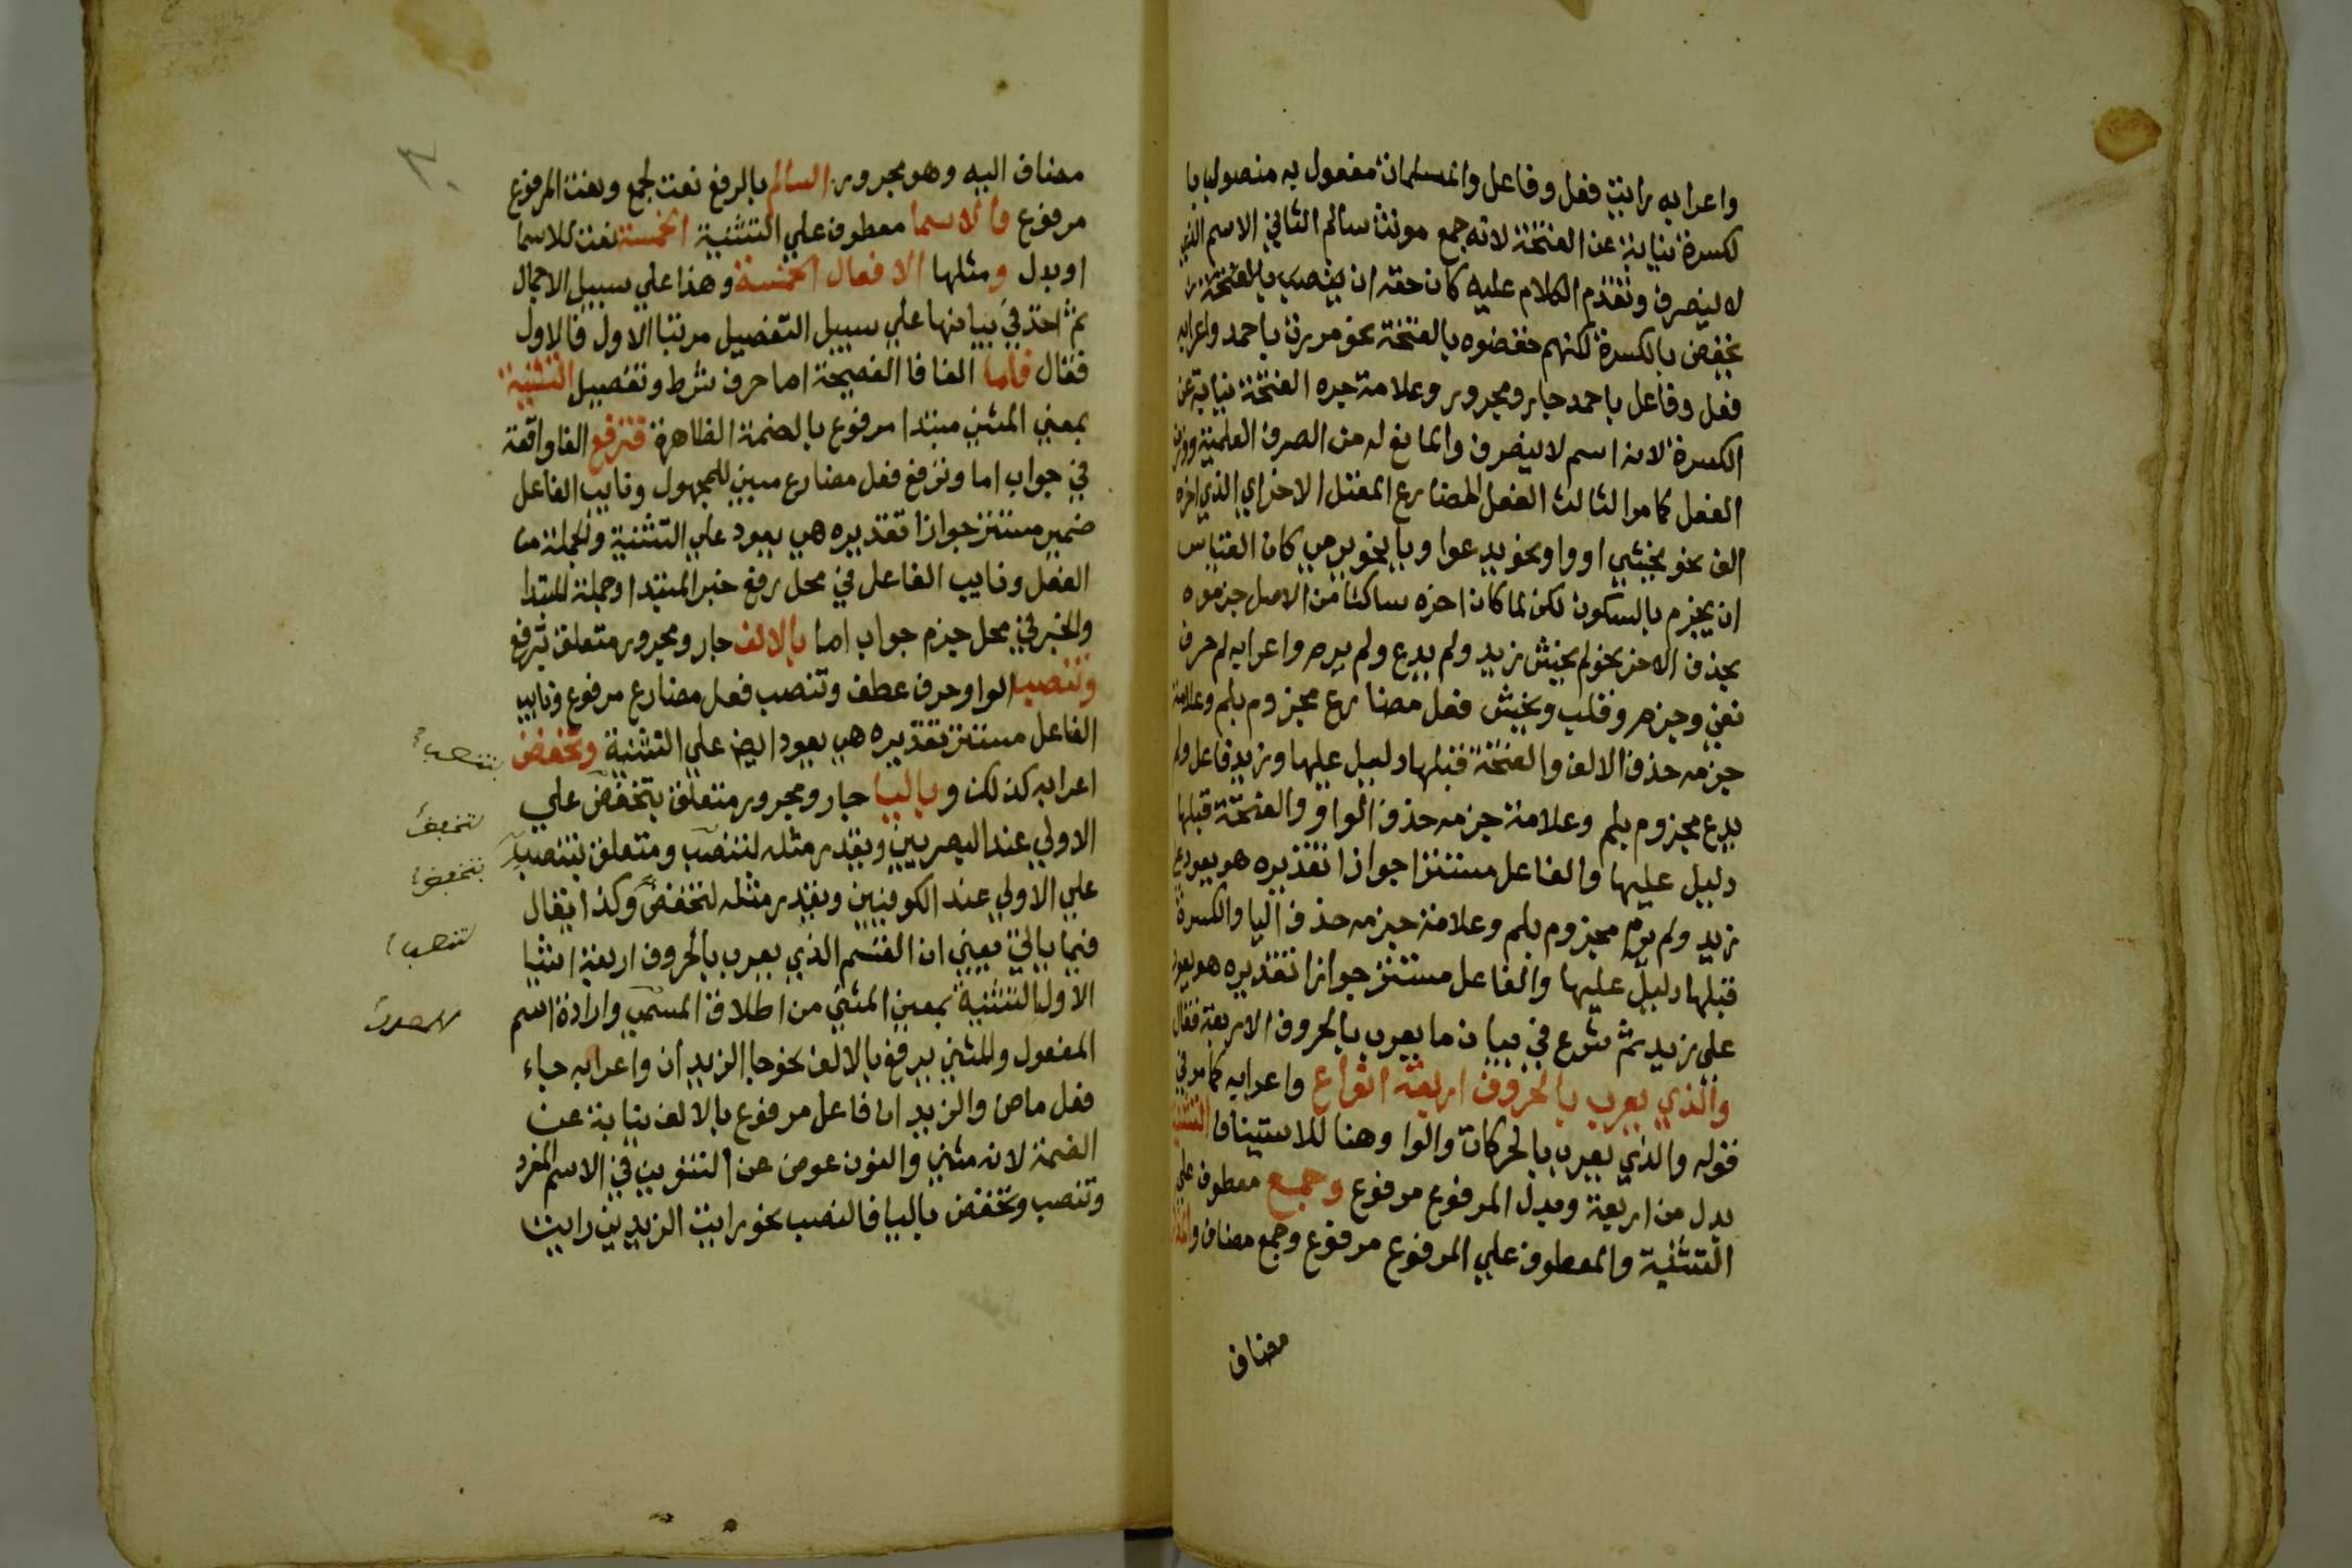 واعرابه رايت فعل وفاعل والمسلمات مفعول به منصوب با
لكسرة نيابة عن الفتحة لانه جمع مونث سالم الثاني الاسم الذي
لا ينصرف وتقدم الكلام عليه كان حقه ان ينصب بالفتحة
يخفض بالكسرة لكنهم خفضوه بالفتحة نحو مررت باحمد واعرابه
فعل وفاعل باحمد جار ومجرور وعلامة جره الفتحة نيابة عن
الكسرة لانه اسم لا ينصرف والمانع له من الصرف العلمية ووزن
الفعل كما مر الثالث الفعل المضارع المعتل الاخر اي الذي اخره
الف نحو يخشي او واو نحو يدعوا ويا نحو يرمي كان القياس
ان يجزم بالسكون لكن لما كان اخره ساكنا من الاصل جزموه
بحذف الاخر نحو لم يخش زيد ولم يدع ولم يرم واعرابه لم حرف
نفي وجزم وقلب ويخش فعل مضارع مجزوم بلم وعلامة
جزمه حذف الالف والفتحة قبلها دليل عليها وزيد فاعل ولم
يدع مجزوم بلم وعلامة جزمه حذف الواو والضمة قبلها
دليل عليها والفاعل مستترا جوازا تقديره هو يعود ع
زيد ولم يرم مجزوم بلم وعلامة جزمه حذف اليا والكسرة
قبلها دليل عليها والفاعل مستتر جوازا تقديره هو يعود
علي زيد ثم شرع في بيان ما يعرب بالحروف الاربعة فقال
والذي يعرب بالحروف اربعة انواع واعرابه كما مر في
قوله والذي يعرب بالحركات والوا وهنا للاستينافا التثنية
بدل من اربعة وبدل المرفوع مرفوع وجمع معطوف علي
التثنية والمعطوف علي المرفوع مرفوع وجمع مضاف والمذكر
مضاف
مضاف اليه وهو مجرور السالم بالرفع نعت لجمع ونعت المرفوع
مرفوع والاسما معطوف علي التثنية الخمسة نعت للاسما
او بدل ومثلها الافعال الخمسة وهذا علي سبيل الاجمال
ثم اخذ في بيانها علي سبيل التفصيل مرتبا الاول فالاول
فقال فاما الفا فا الفصيحة اما حرف شرط وتفصيل التثنية
بمعني المثني مبتدا مرفوع بالضمة الظاهرة فترفع الفا واقعة
في جواب اما وترفع فعل مضارع مبني للمجهول ونايب الفاعل
ضمير مستتر جوازا تقديره هي يعود علي التثنية والجملة من
الفعل ونايب الفاعل في محل رفع خبر المبتدا وجملة المبتدا
والخبر في محل جزم جواب اما بالالف جار ومجرور متعلق بترفع
وتنصب الواو حرف عطف وتنصب فعل مضارع مرفوع ونايب
الفاعل مستتر تقديره هي يعود ايض علي التثنية وتخفض
اعرابه كذلك وباليا جار ومجرور متعلق بتخفض علي
الاولي عند البصريين ويقدر مثله لتنصب ومتعلق بتنصب
علي الاولي عند الكوفيين ويقدر مثله لتخفض وكذا يقال
فيما ياتي يعني ان القسم الذي يعرب بالحروف اربعة اشيا
الاول التثنية بمعني المثني من اطلاق المسمي وارادة اسم
المفعول والمثني يرفع بالالف نحو جا الزيدان واعرابه جاء
فعل ماض والزيدان فاعل مرفوع بالالف نيابة عن
الضمة لانه مثني والنون عوض عن التنوين في الاسم المفرد
وتنصب وتخفض باليا فالنصب نحو رايت الزيدين رايت